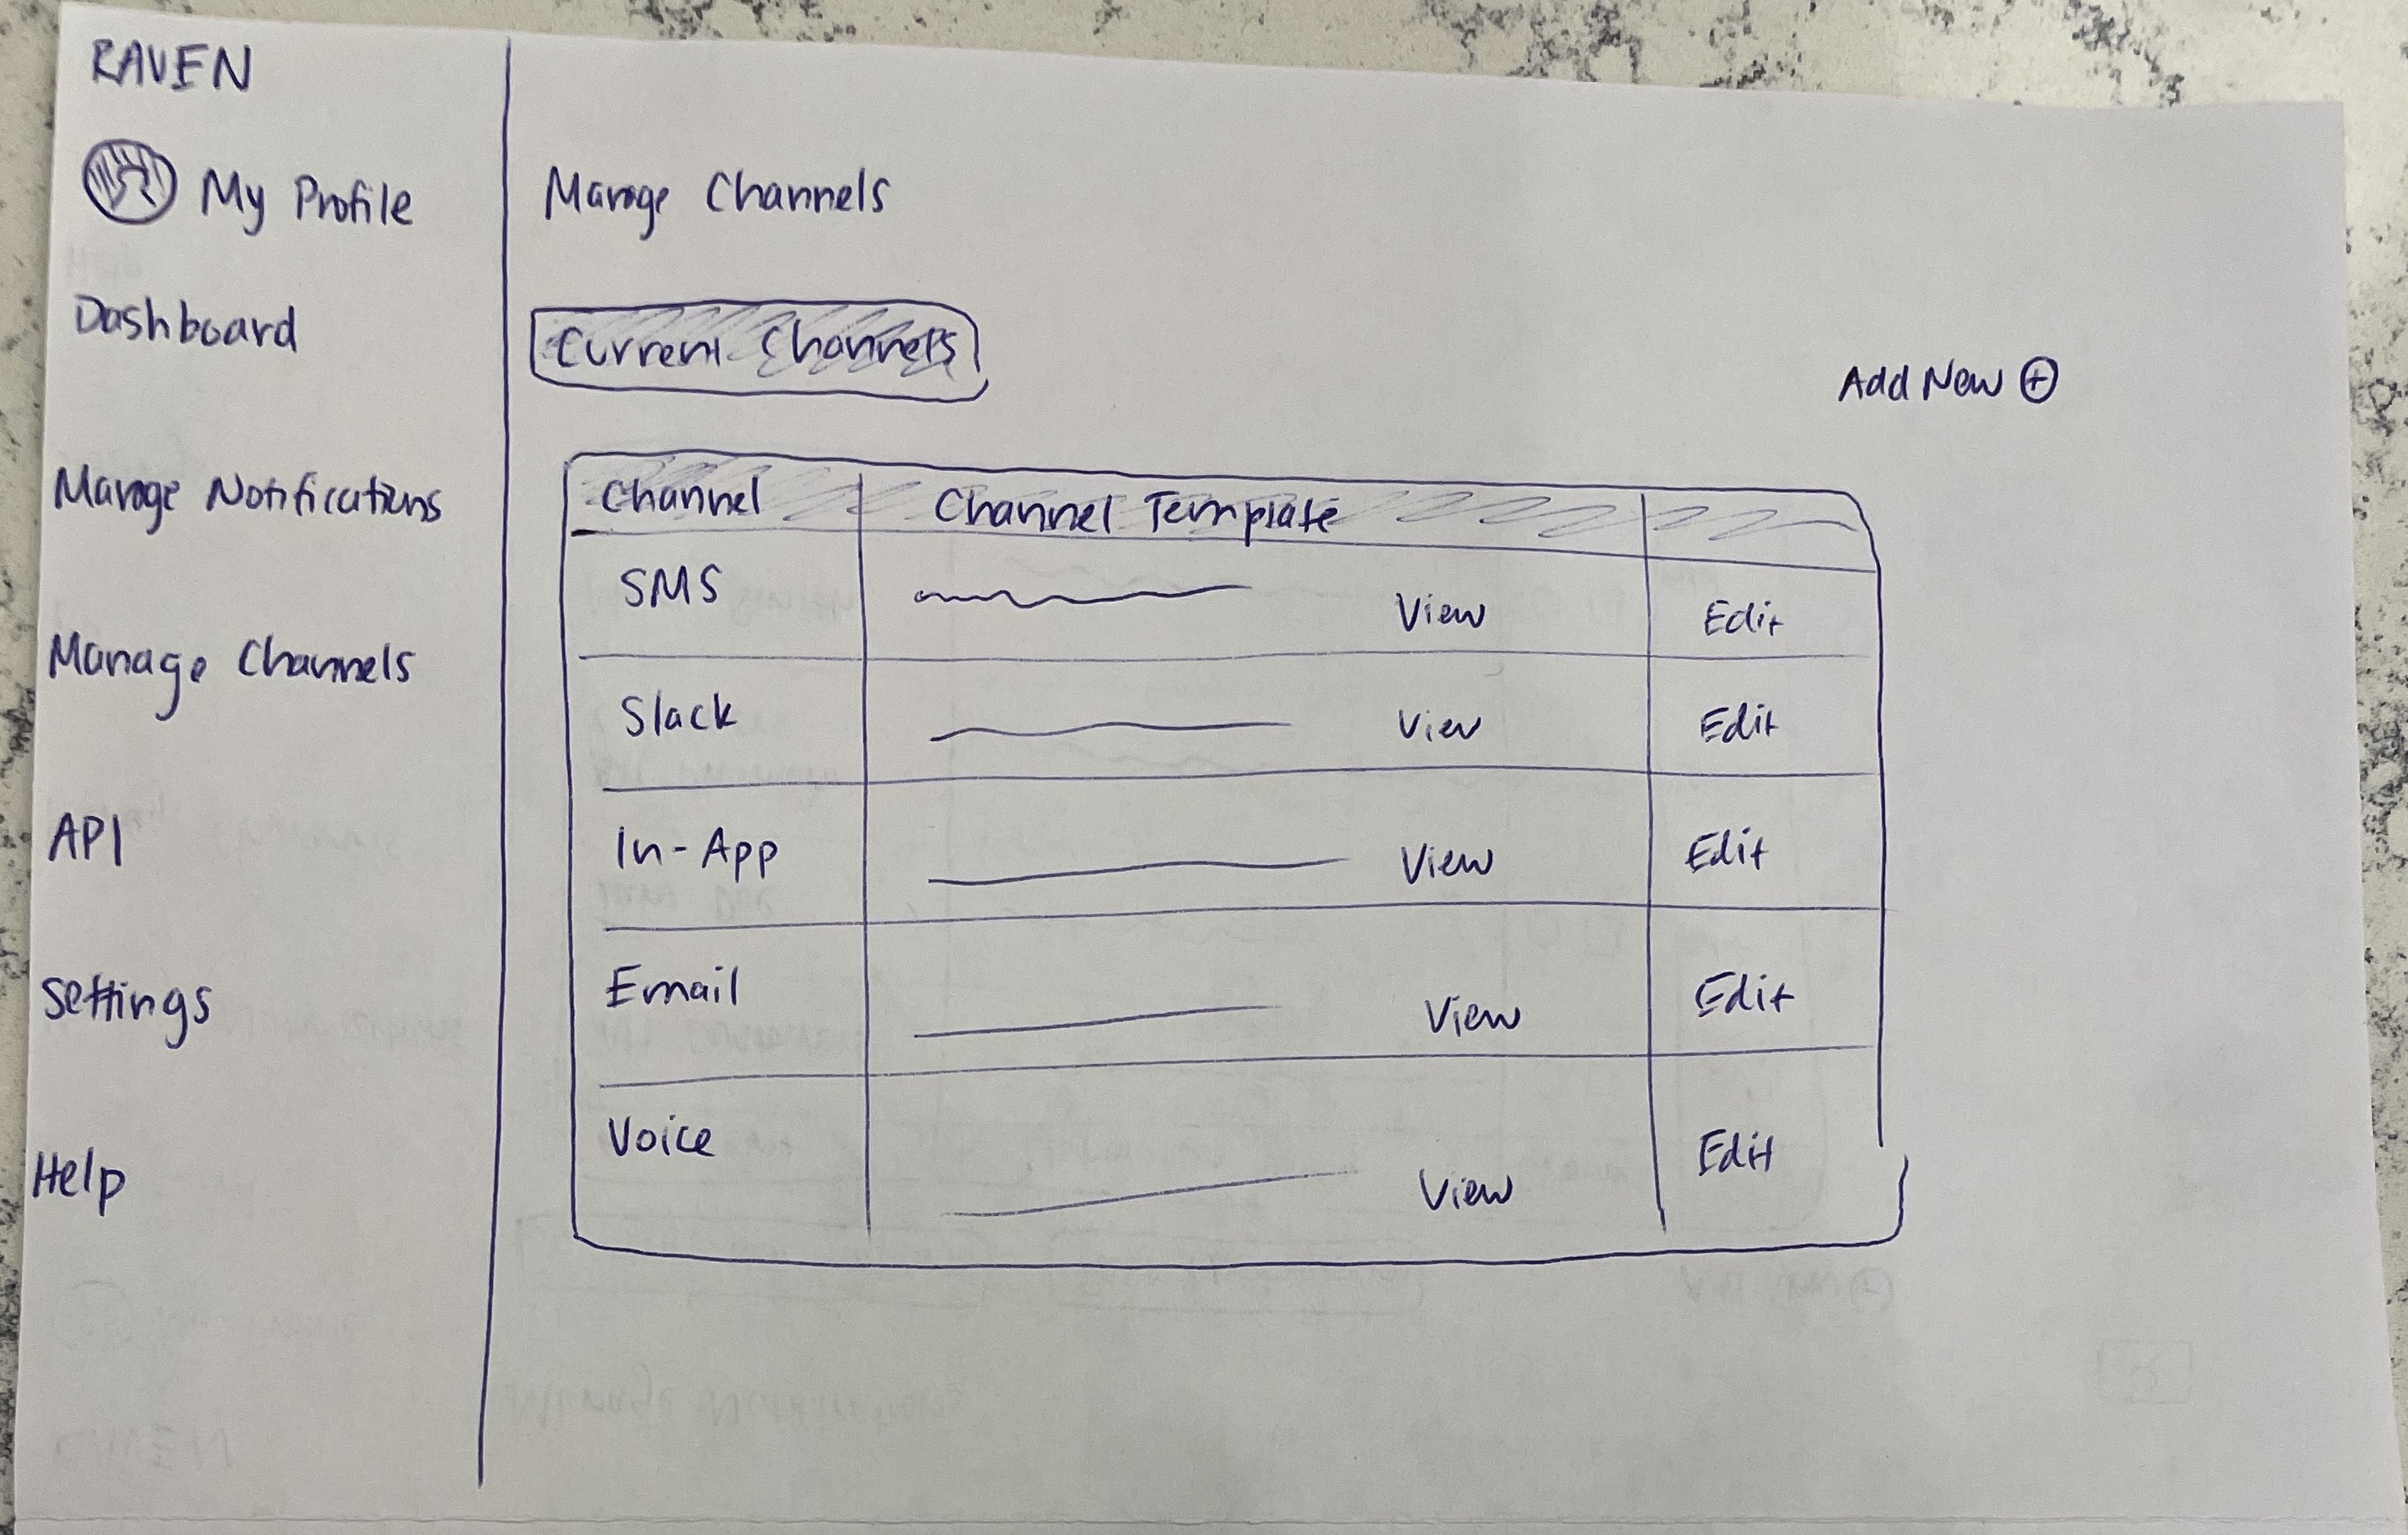 RAVEN
My Profile
Dashboard
Manage Notifications
Manage Channels
API
Settings
Help
Manage Channels
Current Channels
Add New
Channel Channel Template
SMS View Edit
Slack View Edit
In-App View Edit
Email View Edit
Voice View Edit